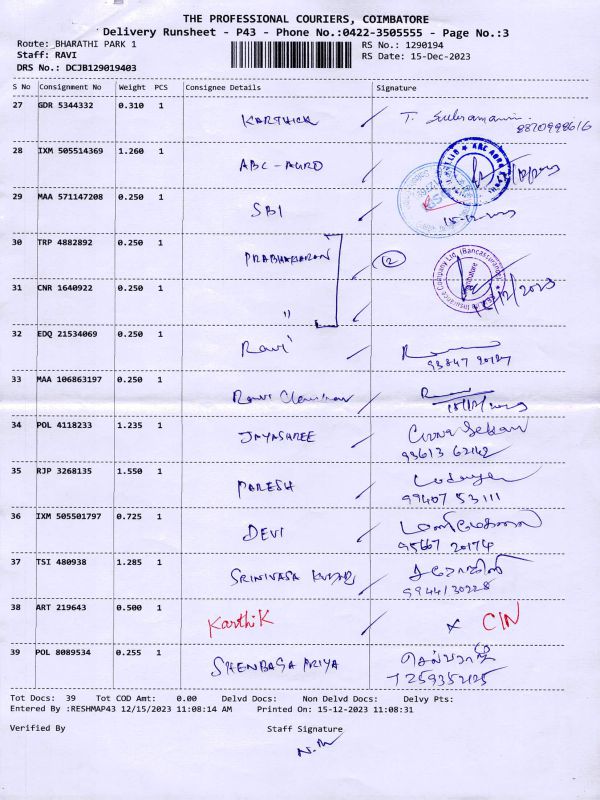 THE PROFESSIONAL COURIERS, COIMBATORE
Delivery Runsheet - P43 - Phone No.:0422-3505555 - Page No.:3
Route: BHARATHI PARK 1 RS No.: 1290194
Staff: RAVI RS Date: 15-Dec-2023
DRS No.: DCJB129019403
S No Consignment No Weight PCS Consignee Details Signature
27 GDR 5344332 0.310 1 KARTHICK T. Subramani
8870998616
28 IXM 505514369 1.260 1 ABC-AGRO
29 MAA 571147208 0.250 1 SBI
30 TRP 4882892 0.250 1 PRABHAKARAN 12
31 CNR 1640922 0.250 1 "
32 EDQ 21534069 0.250 1 Ravi
33 MAA 106863197 0.250 1 Ravi
34 POL 4118233 1.235 1 JAYASHREE
93613 62142
35 RJP 3268135 1.550 1 PARESH
99407 53111
36 IXM 505501797 0.725 1 DEVI
95667 20174
37 TSI 480938 1.285 1 SRINIVASA KUMAR
9944130228
38 ART 219643 0.500 1 Karthik x CIN
39 POL 8089534 0.255 1 SHENBAGA PRIYA
7259352125
Tot Docs: 39 Tot COD Amt: 0.00 Delvd Docs: Non Delvd Docs: Delvy Pts:
Entered By :RESHMAP43 12/15/2023 11:08:14 AM Printed On: 15-12-2023 11:08:31
Verified By Staff Signature